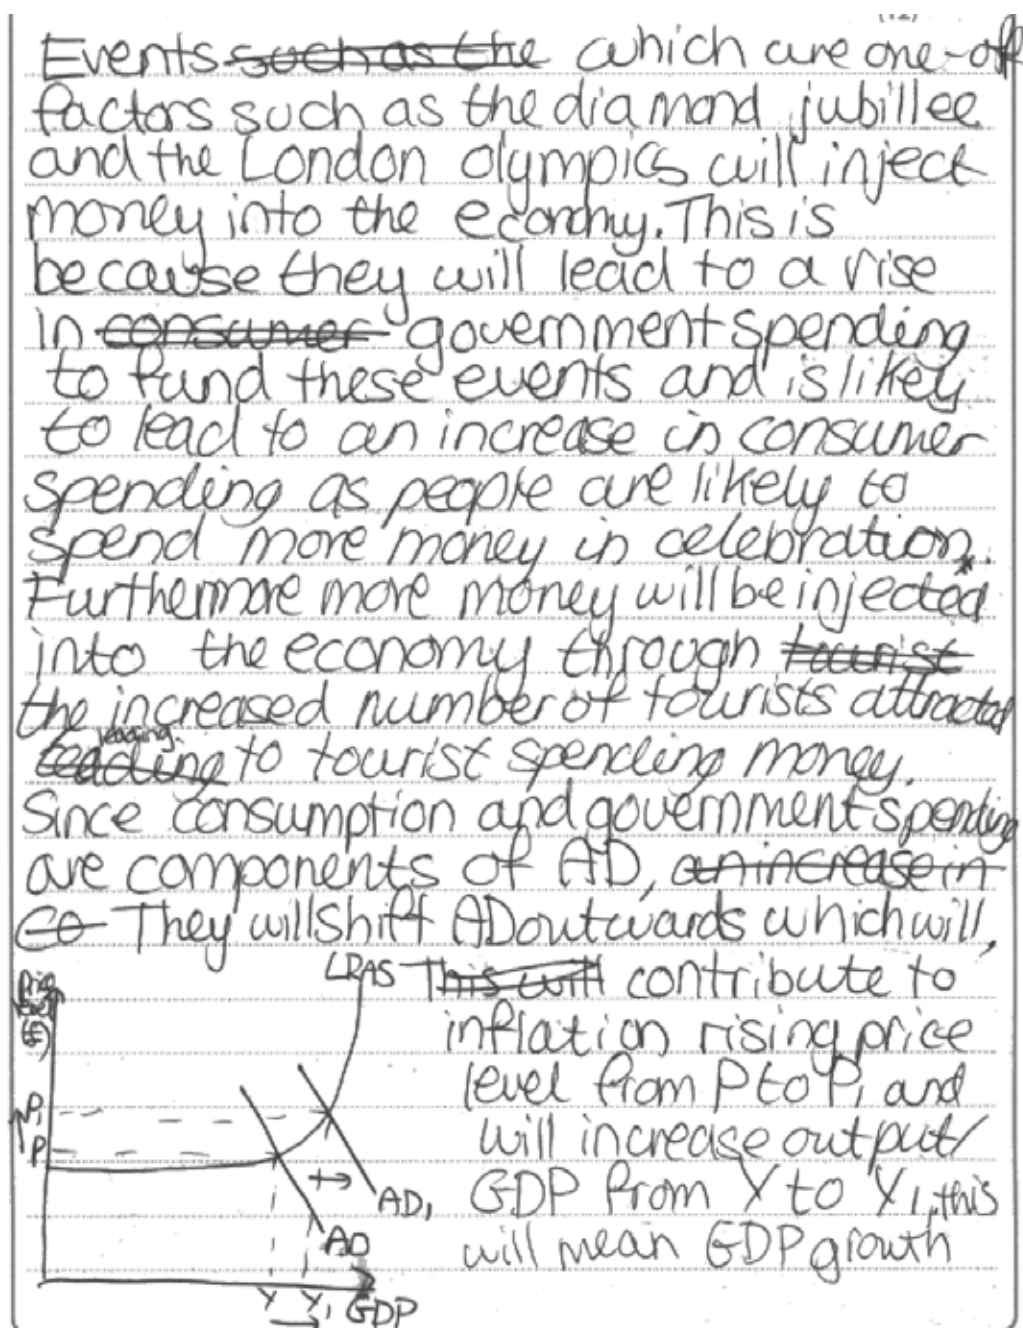 (12)
Events such as the which are one-off
factors such as the diamond jubillee
and the London olympics will inject
money into the economy. This is
because they will lead to a rise
in consumer government spending
to fund these events and is likely
to lead to an increase in consumer
spending as people are likely to
spend more money in celebration.*
Furthermore more money will be injected
into the economy through tourist
the increased number of tourists attracted
leading leading to tourist spending money.
Since consumption and government spending
are components of AD, an increase in
co They will shift AD outwards which will,
LRAS This will contribute to
Price level (£)
inflation rising price
level from P to P1 and
P1
will increase output/
P
GDP from Y to Y1, this
AD1
will mean GDP growth
AD
Y Y1 GDP